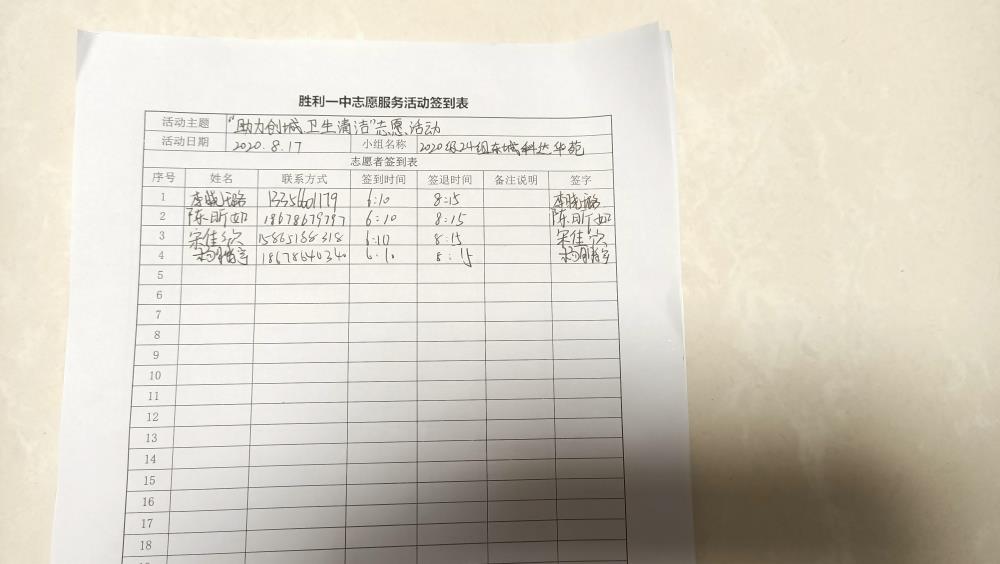 胜利一中志愿服务活动签到表
活动主题 “助力创城 卫生清洁”志愿活动
活动日期 2020.8.17 小组名称 2020级24组东城科达华苑
志愿者签到表
序号 姓名 联系方式 签到时间 签退时间 备注说明 签字
1 李晓璐 13356601179 6:10 8:15 李晓璐
2 陈昕如 18678679787 6:10 8:15 陈昕如
3 宋佳 15865188318 6:10 8:15 宋佳
4 18678640340 6:10 8:15
5
6
7
8
9
10
11
12
13
14
15
16
17
18